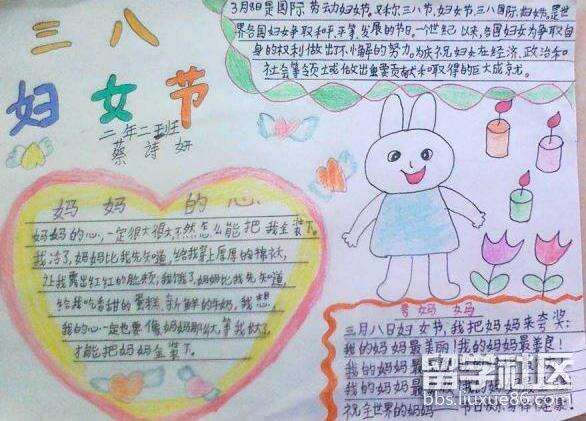 三八
妇女节
二年二班
蔡诗妍
3月8日是国际劳动妇女节,又称三八节,妇女节,三八国际妇女节。是世
界各国妇女争取和平、平等、发展的节日。一世纪以来,各国妇女为争取自
身的权利做出了不懈的努力。为庆祝妇女在经济、政治和
社会等领域做出重要贡献和取得的巨大成就。
妈妈的心
妈妈的心,一定很大很大,不然怎么能把我全装下。
我冷了,妈妈比我先知道,给我穿上厚厚的棉衣,
让我露出红红的脸颊;我饿了,妈妈比我先知道,
给我吃香甜的蛋糕、新鲜的牛奶,我想,
我的心一定也要像妈妈那么大,等我大了,
才能把妈妈全装下。
夸妈妈
三月八日妇女节,我把妈妈来夸奖:
我的妈妈最美丽!我的妈妈最善良!
我的妈妈最 我的妈
我的妈妈最 我的妈
祝全世界的妈妈——节日快乐
留学社区
bbs.liuxue86.com